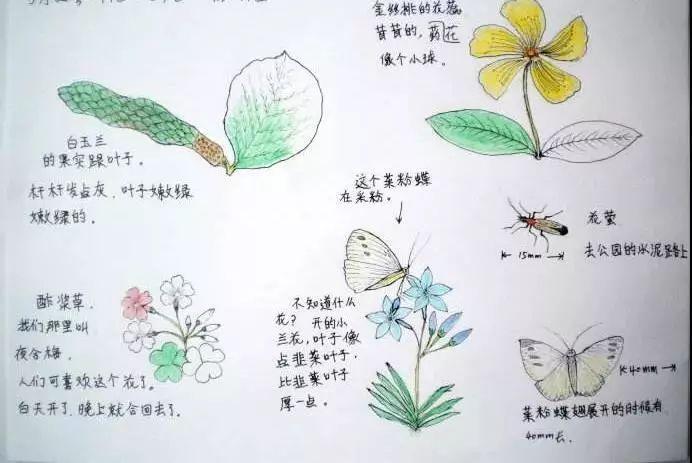 金丝桃的花蕊
茸茸的，药花
像个小球。
白玉兰
的果实跟叶子。
杆杆发点灰，叶子嫩绿
嫩绿的。
这个菜粉蝶
在采粉。
花萤
去公园的水泥路上
15mm
酢浆草，
我们那里叫
夜合梅，
人们可喜欢这个花了。
白天开了，晚上就合回去了。
不知道什么
花？开的小
兰花，叶子像
点韭菜叶子，
比韭菜叶子
厚一点。
40mm
菜粉蝶翅展开的时候有
40mm长